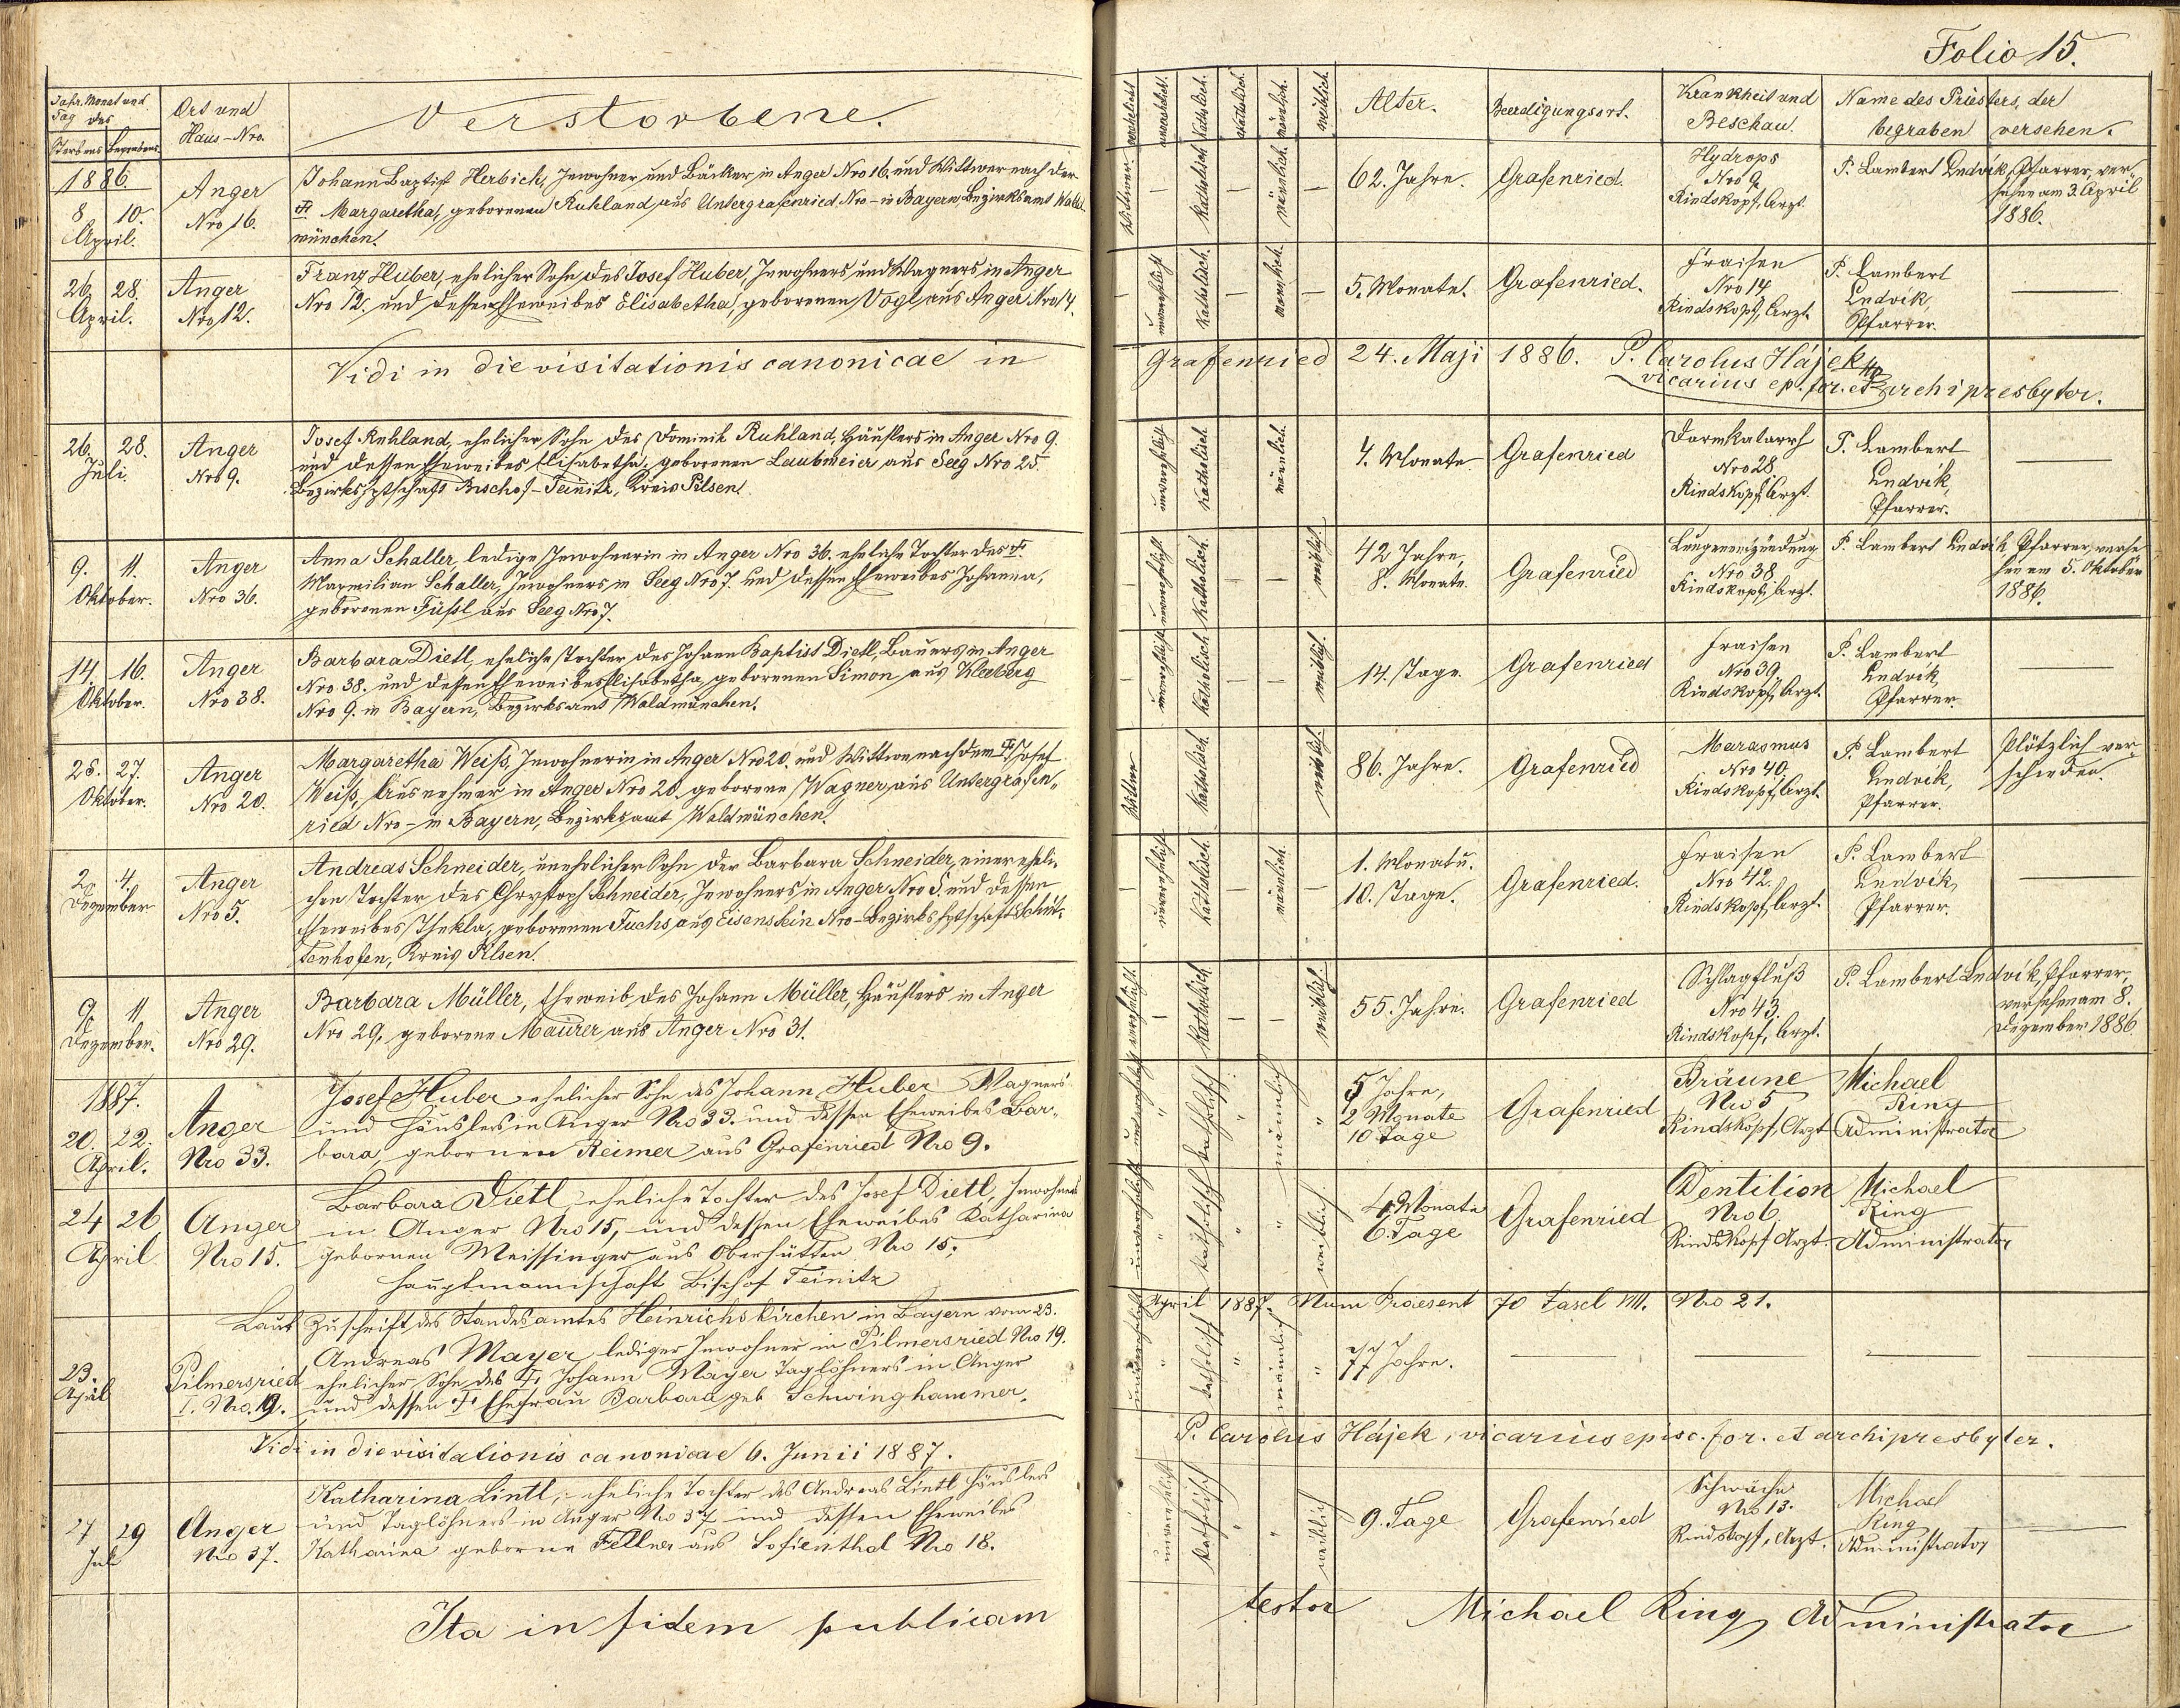 Folio 15.
Jahr, Monat und
Tag des
Sterbens Begrabens
Ort und
Haus-Nro.
Verstorbene.
verehelicht
unverehelicht.
Katholisch.
männlich.
weiblich.
Alter.
Beerdigungsort.
Krankheit und
Beschau.
Name des Priesters, der
begraben versehen.
1886.
8 10.
April.
Anger
Nro 16.
Johann Baptist Herbich, Inwohner und Bäcker in Anger Nro 16. und Wittwer nach der
Margaretha, geborenen Ruhland aus Untergrafenried, Nro – in Bayern, Bezirksamt Wald
münchen.
Wittwer.
–
Katholisch
–
männlich.
–
62. Jahre.
Grafenried.
Hydrops
Nro 9
Rindskopf, Arzt.
P. Lambert Endvik, Pfarrer, ver-
sehen am 3. April
1886.
26. 28.
April.
Anger
Nro 12.
Franz Huber, ehelicher Sohn des Josef Huber, Inwohners und Wagners in Anger
Nro 12. und dessen Eheweibes Elisabetha, geborenen Vogl aus Anger Nro 14.
–
unverehelicht
Katholisch.
–
männlich.
–
5. Monate.
Grafenried.
Fraisen
Nro 14
Rindskopf, Arzt.
P. Lambert
Endvik,
Pfarrer.
Vidi in die visitationis canonicae in Grafenried 24. Maji 1886. P. Carolus Hájek
vicarius ep. for. et archipresbyter.
26. 28.
Juli.
Anger
Nro 9.
Josef Ruhland, ehelicher Sohn des Dominik Ruhland, Häuslers in Anger Nro 9.
und dessen Eheweibes Elisabetha, geborenen Laubmeier aus Seeg Nro 25.
Bezirkshptschaft Bischof-Teinitz, Kreis Pilsen.
unverehelicht
Katholisch.
männlich.
4. Monate
Grafenried
Darmkatarrh
Nro 28
Rindskopf, Arzt.
P. Lambert
Endvik,
Pfarrer.
9. 11.
Oktober.
Anger
Nro 36.
Anna Schaller, ledige Inwohnerin in Anger Nro 36. eheliche Tochter des
Maxmilian Schaller, Inwohners in Seeg Nro 7 und dessen Eheweibes Johanna,
geborenen Füßl aus Seeg Nro 7.
–
unverehelicht
Katholisch.
–
–
weiblich.
42 Jahre,
8. Monate.
Grafenried
Lungenentzündung
Nro 38.
Rindskopf, Arzt.
P. Lambert Endvik, Pfarrer, verse
hen am 5. Oktober
1886.
14. 16.
Oktober.
Anger
Nro 38.
Barbara Dietl, eheliche Tochter des Johann Baptist Dietl, Bauers in Anger
Nro 38. und dessen Eheweibes Elisabetha, geborenen Simon aus Kleeberg
Nro 9. in Bayern, Bezirksamt Waldmünchen.
–
unverehelicht
Katholisch
–
–
weiblich.
14. Tage
Grafenried
Fraisen
Nro 39.
Rindskopf, Arzt.
P. Lambert
Endvik,
Pfarrer.
25. 27.
Oktober.
Anger
Nro 20.
Margaretha Weiß, Inwohnerin in Anger Nro 20. und Wittwe nach dem Josef
Weiß, Ausnehmer in Anger Nro 20. geborene Wagner aus Untergrafen-
ried Nro – in Bayern, Bezirksamt Waldmünchen.
Wittwe
Katholisch.
weiblich.
86. Jahre.
Grafenried
Marasmus
Nro 40.
Rindskopf, Arzt.
P. Lambert
Endvik,
Pfarrer.
Plötzlich ver-
schieden.
2. 4.
Dezember
Anger
Nro 5.
Andreas Schneider, unehelicher Sohn der Barbara Schneider, einer eheli-
chen Tochter des Chrystoph Schneider, Inwohners in Anger Nro 5. und dessen
Eheweibes Thekla, geborenen Fuchs aus Eisenstein Nro – Bezirkshptschaft Schüt-
tenhofen, Kreis Pilsen.
–
unverehelicht
Katholisch.
–
männlich.
–
1. Monat u.
10. Tage.
Grafenried.
Fraisen
Nro 42.
Rindskopf, Arzt.
P. Lambert
Endvik,
Pfarrer.
9. 11.
Dezember.
Anger
Nro 29.
Barbara Müller, Eheweib des Johann Müller, Häuslers in Anger
Nro 29, geborene Maurer aus Anger Nro 31.
verehelicht.
–
Katholisch
–
–
weiblich.
55. Jahre.
Grafenried
Schlagfluß
Nro 43.
Rindskopf, Arzt.
P. Lambert Endvik, Pfarrer,
versehen am 8.
Dezember 1886
1887.
20. 22.
April.
Anger
Nro 33.
Josef Huber ehelicher Sohn des Johann Huber Wagners
und Häuslers in Anger Nro 33. und dessen Eheweibes Bar-
bara, gebornen Reimer aus Grafenried Nro 9.
unverehelicht
"
katholisch
"
männlich
"
5 Jahre,
2 Monate
10 Tage
Grafenried
Bräune
Nro 5
Rindskopf, Arzt
Michael
Ring
Administrator
24 26
April
Anger
Nro 15.
Barbara Dietl, eheliche Tochter des Josef Dietl, Inwohners
in Anger Nro 15, und dessen Eheweibes Katharina
gebornen Meissinger aus Oberhütten Nro 15,
Hauptmannschaft Bischof Teinitz
unverehelicht
"
katholisch
"
"
weiblich
4 Monate
6. Tage
Grafenried
Dentition
Nro 6
Rindskopf Arzt.
Michael
Ring
Administrator
Laut Zuschrift des Standesamtes Heinrichskirchen in Bayern vom 23. April 1887. Num Praesent 70 Fascl VII. Nro 21.
23.
April
Pilmersried
I. Nro. 19.
Andreas Mayer lediger Inwohner in Pilmersried Nro 19.
ehelicher Sohn des Johann Mayer Taglöhners in Anger
und dessen Ehefrau Barbara geb Schwinghammer.
unverehelicht
"
katholisch
"
männlich
"
77 Jahre.
Vidi in die visitationis canonicae 6. Junii 1887. P. Carolus Hájek, vicarius episc. for. et archipresbyter.
27 29
Juli
Anger
Nro 37.
Katharina Lintl, eheliche Tochter des Andreas Lintl Häuslers
und Taglöhners in Anger Nro 37 und dessen Eheweibes
Katharina geborne Fellner aus Sofienthal Nro 18.
unverehelicht
katholisch
"
"
weiblich
9. Tage
Grafenried
Schwäche
Nro 13.
Rindskopf, Arzt.
Michael
Ring
Administrator
Ita in fidem publicam testor Michael Ring Administrator